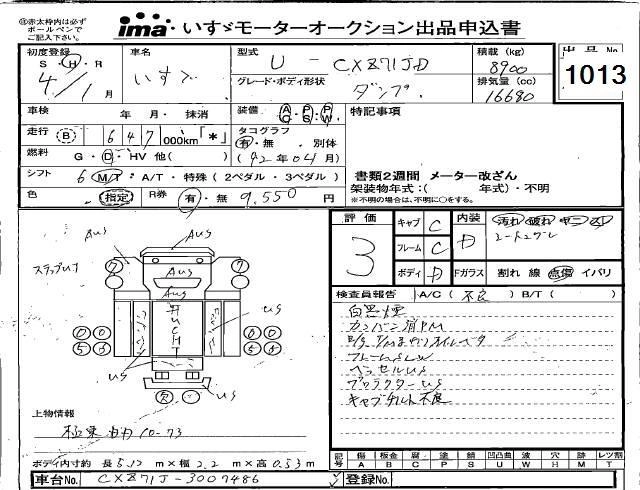 ※赤太枠内は必ず
ボールペンで
ご記入下さい。
ima いすゞモーターオークション出品申込書
初度登録
S・H・R
4/1月
車名
いすゞ
型式
U-CXZ71JD
グレード・ボディ形状
ダンプ
積載 (kg)
8900
排気量 (cc)
16680
出品No
1013
車検 年 月・抹消
装備 AC・PS・PW
特記事項
走行 B 647,000km「*」
タコグラフ
有・無 別体
(92年04月)
燃料 G・D・HV 他( )
シフト 6 M/T・A/T・特殊 (2ペダル・3ペダル)
書類2週間 メーター改ざん
架装物年式:( 年式)・不明
※不明の場合は、不明に○をする。
色 指定 R券 有・無 9,550円
評価
3
キャブ C
フレーム C
ボディ D
内装 D
汚れ 破れ
Fガラス 割れ 線 点傷 イバリ
検査員報告 A/C(不良) B/T( )
白黒煙
カンバン消PM
フレームSW
ベッセルUS
プロテクターUS
キャブチルト不良
AUS
AUS
ステップUT
7
7
AUS
AUS
US
US
US
US
欠
上物情報
極東 10-73
ボディ内寸約 長5.12m×幅2.2m×高0.53m
記号 傷A 板金B 腐C 塗P 錆S 凹凸曲U 波W 穴H 跡M レツ割T
車台No. CXZ71J-3007486
登録No.